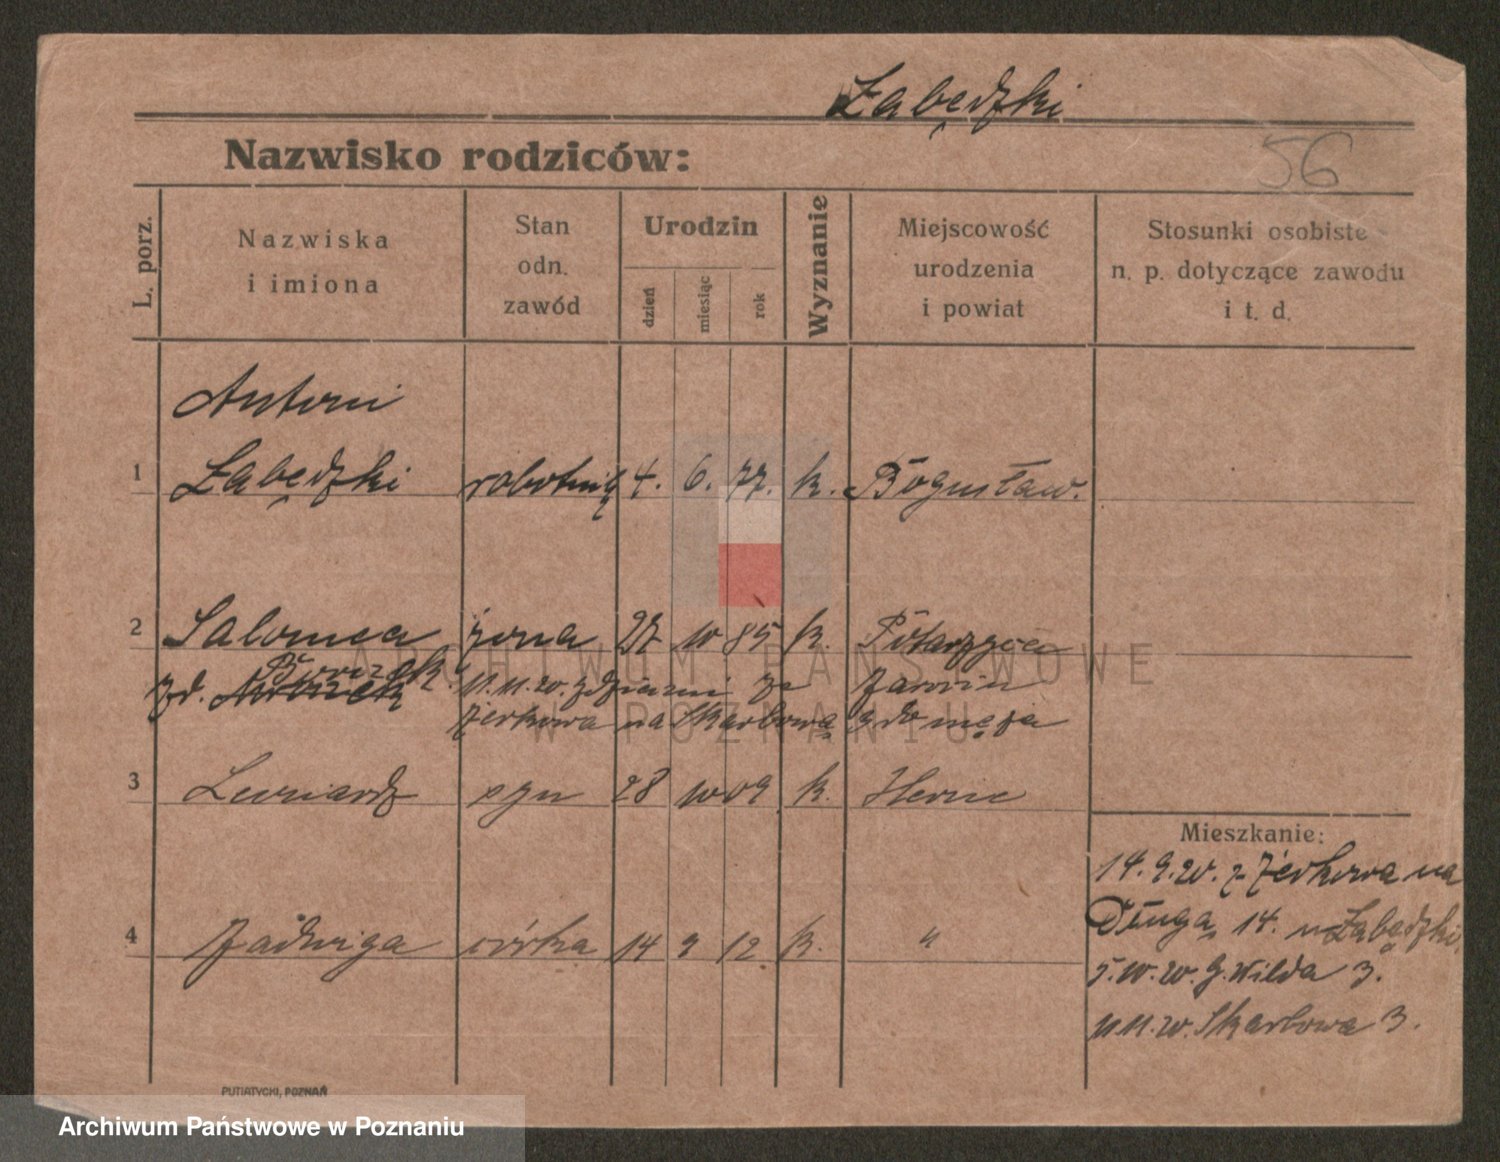 Łabędzki
Nazwisko rodziców:
56
L. porz.
Nazwiska
i imiona
Stan
odn.
zawód
Urodzin
dzień
miesiąc
rok
Wyznanie
Miejscowość
urodzenia
i powiat
Stosunki osobiste
n. p. dotyczące zawodu
i t. d.
Antoni
1 Łabędzki robotnik 4. 6. 77. k. Bogusław.
2 Salomea żona 27 10 85 k. Potarzyca
zd. 11.11.20. z dziećmi ze Jarocin
Żerkowa na Skarbową 3 do męża
3 Leonard syn 28 10 09 k. Herne
4 Jadwiga córka 14 9 12 k. "
Mieszkanie:
14.9.20. z Żerkowa na
Długa 14. u Łabędzki
5.10.20. G. Wilda 3.
11.11.20. Skarbowa 3.
PUTIATYCKI, POZNAŃ
ARCHIWUM PAŃSTWOWE
W POZNANIU
Archiwum Państwowe w Poznaniu